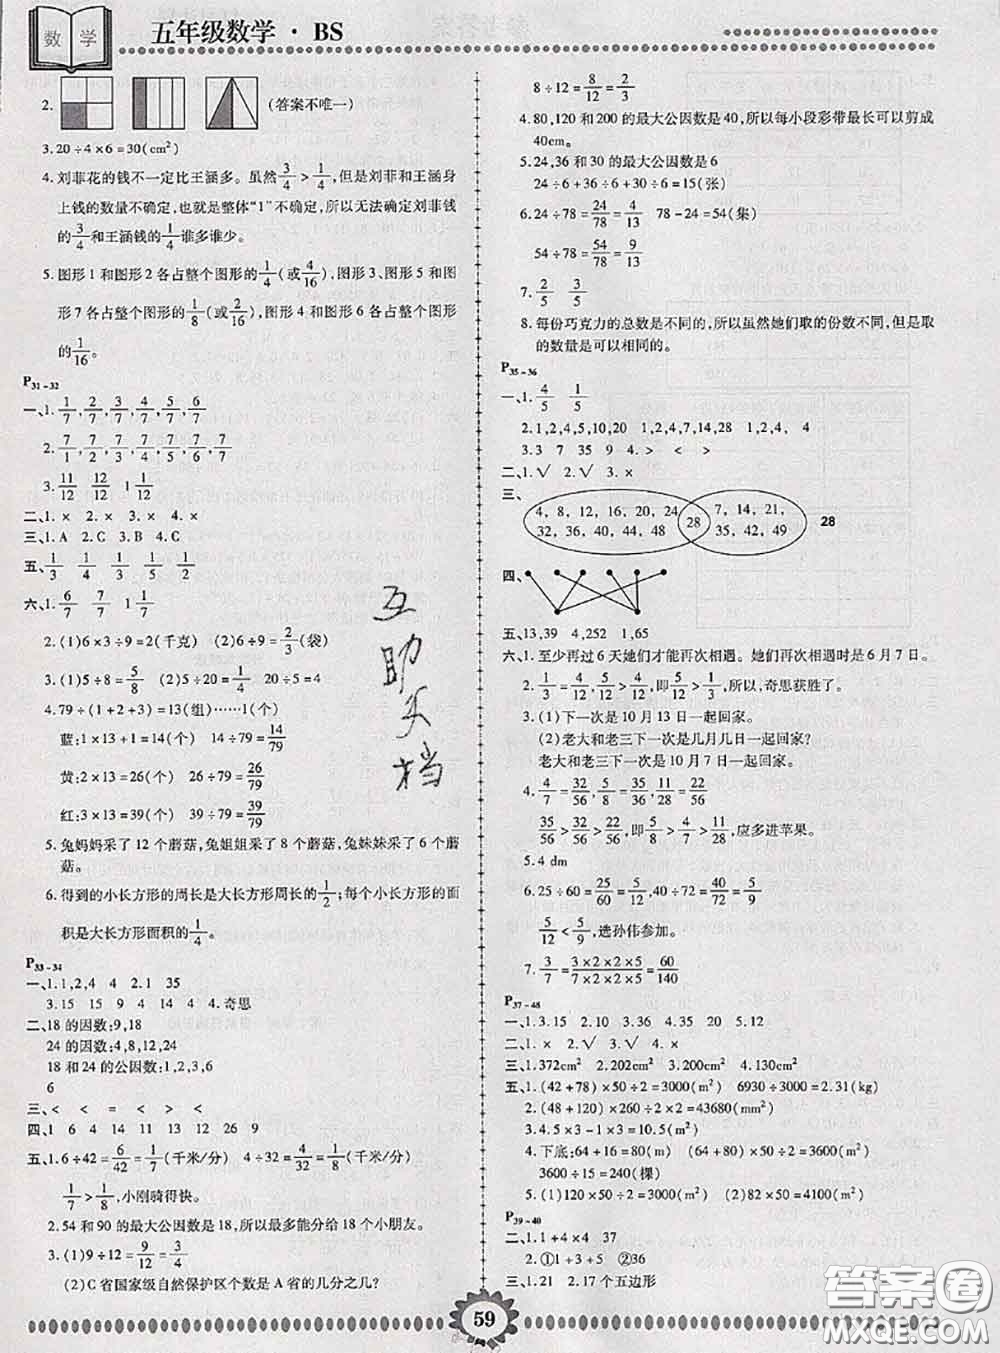 数学
五年级数学·BS
2. (答案不唯一)
3.20÷4×6=30(cm²)
4.刘菲花的钱不一定比王涵多。虽然3/4>1/4,但是刘菲和王涵身
上钱的数量不确定,也就是整体“1”不确定,所以无法确定刘菲钱
的3/4和王涵钱的1/4谁多谁少。
5.图形1和图形2各占整个图形的1/4(或4/16),图形3、图形5和图
形7各占整个图形的1/8(或2/16),图形4和图形6各占整个图形
的1/16。
P31-32
一、1.1/7,2/7,3/7,4/7,5/7,6/7
2.7/1,7/2,7/3,7/4,7/5,7/6,7/7
3.11/12 12/12 1 1/12
二、1.× 2.× 3.× 4.×
三、1.A 2.C 3.B 4.C
五、1/3 1/4 1/3 1/5 1/2
六、1.6/7 7/7 1 1/7
2.(1)6×3÷9=2(千克) (2)6÷9=2/3(袋)
3.(1)5÷8=5/8 (2)5÷20=1/4 20÷5=4
4.79÷(1+2+3)=13(组)……1(个)
蓝:1×13+1=14(个) 14÷79=14/79
黄:2×13=26(个) 26÷79=26/79
红:3×13=39(个) 39÷79=39/79
5.兔妈妈采了12个蘑菇,兔姐姐采了8个蘑菇,兔妹妹采了6个蘑
菇。
6.得到的小长方形的周长是大长方形周长的1/2;每个小长方形的面
积是大长方形面积的1/4。
P33-34
一、1.1,2,4 4 2.1 35
3.15 15 9 14 4 4.奇思
二、18的因数:9,18
24的因数:4,8,12,24
18和24的公因数:1,2,3,6
6
三、< < = > > <
四、1 6 4 14 11 13 12 26 9
五、1.6÷42=6/42=1/7(千米/分) 4÷32=4/32=1/8(千米/分)
1/7>1/8,小刚骑得快。
2.54和90的最大公因数是18,所以最多能分给18个小朋友。
3.(1)9÷12=9/12=3/4
(2)C省国家级自然保护区个数是A省的几分之几?
8÷12=8/12=2/3
4.80,120和200的最大公因数是40,所以每小段彩带最长可以剪成
40cm。
5.24,36和30的最大公因数是6
24÷6+36÷6+30÷6=15(张)
6.24÷78=24/78=4/13 78-24=54(集)
54÷78=54/78=9/13
7.2/5 3/5
8.每份巧克力的总数是不同的,所以虽然她们取的份数不同,但是取
的数量是可以相同的。
P35-36
一、1.4/5 1/5
2.1,2,4,5,10,20 1,2,4,7,14,28 1,2,4, 4
3.3 7 35 9 4.> < > <
二、1.√ 2.√ 3.×
三、
4, 8, 12, 16, 20, 24
32, 36, 40, 44, 48
28
7, 14, 21,
35, 42, 49
28
四、
五、13,39 4,252 1,65
六、1.至少再过6天她们才能再次相遇。她们再次相遇时是6月7日。
2.1/3=4/12,5/12>4/12,即5/12>1/3,所以,奇思获胜了。
3.(1)下一次是10月13日一起回家。
(2)老大和老三下一次是几月几日一起回家?
老大和老三下一次是10月7日一起回家。
4.4/7=32/56,5/8=35/56,11/28=22/56
35/56>32/56>22/56,即5/8>4/7>11/28,应多进苹果。
5.4 dm
6.25÷60=25/60=5/12,40÷72=40/72=5/9
5/12<5/9,选孙伟参加。
7.3/7=3×2×2×5/7×2×2×5=60/140
P37-48
一、1.3.15 2.10 3.36 4.35 5.12
二、1.× 2.√ 3.√ 4.×
三、1.372cm² 2.202cm² 3.60cm² 4.130cm²
五、1.(42+78)×50÷2=3000(m²) 6930÷3000=2.31(kg)
2.(48+120)×260÷2×2=43680(mm²)
3.4.5×3-1×3=10.5(m²)
4.下底:64+16=80(m) (64+80)×50÷2=3600(m²)
3600÷15=240(棵)
5.(1)120×50÷2=3000(m²) (2)82×50=4100(m²)
P39-40
二、1.1+4×4 37
2.①1+3+5 ②36
三、1.21 2.17个五边形
互
助
文
档
59
答案圈
MXQE.COM